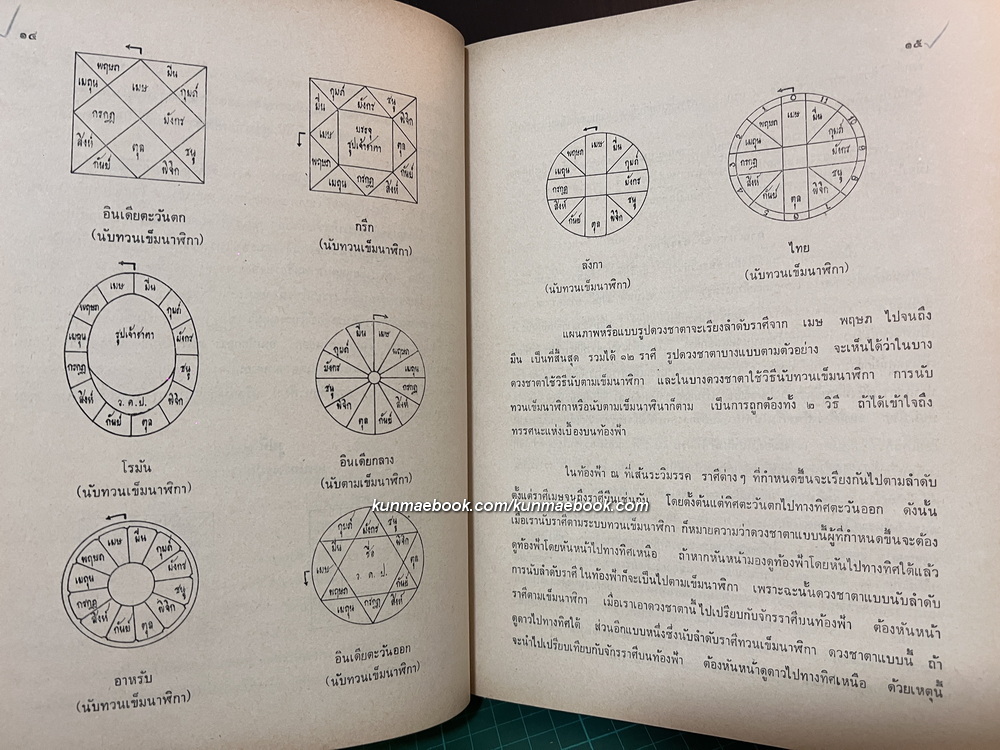 ๑๔
พฤษภ
มีน
เมถุน
เมษ
กุมภ์
กรกฎ
มังกร
สิงห์
ตุล
ธนู
กันย์
พิจิก
อินเดียตะวันตก
(นับทวนเข็มนาฬิกา)
กุมภ์
ธนู
มีน
มังกร
พิจิก
เมษ
บรรจุ
รูปเจ้าชาตา
ตุล
พฤษภ
เมถุน
กรกฎ
สิงห์
กันย์
กรีก
(นับทวนเข็มนาฬิกา)
เมษ
มีน
พฤษภ
กุมภ์
เมถุน
รูปเจ้าชาตา
มังกร
กรกฎ
ธนู
สิงห์
ว. ค. ป.
พิจิก
กันย์
ตุล
โรมัน
(นับทวนเข็มนาฬิกา)
มีน
เมษ
กุมภ์
พฤษภ
มังกร
เมถุน
ธนู
กรกฎ
พิจิก
สิงห์
ตุล
กันย์
อินเดียกลาง
(นับตามเข็มนาฬิกา)
เมษ
มีน
พฤษภ
กุมภ์
เมถุน
มังกร
กรกฎ
ธนู
สิงห์
พิจิก
กันย์
ตุล
อาหรับ
(นับทวนเข็มนาฬิกา)
กุมภ์
มังกร
ธนู
มีน
ชื่อ
พิจิก
เมษ
ว. ค. ป.
ตุล
พฤษภ
กันย์
เมถุน
กรกฎ
สิงห์
อินเดียตะวันออก
(นับทวนเข็มนาฬิกา)
kunmaebook.com/kunmaebook.com
๑๕
พฤษภ
เมษ
มีน
เมถุน
กุมภ์
กรกฎ
มังกร
สิงห์
ธนู
กันย์
ตุล
พิจิก
ลังกา
(นับทวนเข็มนาฬิกา)
พฤษภ
เมษ
มีน
เมถุน
กุมภ์
กรกฎ
มังกร
สิงห์
ธนู
กันย์
ตุล
พิจิก
ไทย
(นับทวนเข็มนาฬิกา)
แผนภาพหรือแบบรูปดวงชาตาจะเรียงลำดับราศีจาก เมษ พฤษภ ไปจนถึง
มีน เป็นที่สิ้นสุด รวมได้ ๑๒ ราศี รูปดวงชาตาบางแบบตามตัวอย่าง จะเห็นได้ว่าในบาง
ดวงชาตาใช้วิธีนับตามเข็มนาฬิกา และในบางดวงชาตาใช้วิธีนับทวนเข็มนาฬิกา การนับ
ทวนเข็มนาฬิกาหรือนับตามเข็มนาฬินาก็ตาม เป็นการถูกต้องทั้ง ๒ วิธี ถ้าได้เข้าใจถึง
ทรรศนะแห่งเบื้องบนท้องฟ้า
ในท้องฟ้า ณ ที่เส้นระวิมรรค ราศีต่าง ๆ ที่กำหนดขึ้นจะเรียงกันไปตามลำดับ
ตั้งแต่ราศีเมษจนถึงราศีมีนเช่นกัน โดยตั้งต้นแต่ทิศตะวันตกไปทางทิศตะวันออก ดังนั้น
เมื่อเรานับราศีตามระบบทวนเข็มนาฬิกา ก็หมายความว่าดวงชาตาแบบนี้ผู้ที่กำหนดขึ้นจะต้อง
ดูท้องฟ้าโดยหันหน้าไปทางทิศเหนือ ถ้าหากหันหน้ามองดูท้องฟ้าโดยหันไปทางทิศใต้แล้ว
การนับลำดับราศี ในท้องฟ้าก็จะเป็นไปตามเข็มนาฬิกา เพราะฉะนั้นดวงชาตาแบบนับลำดับ
ราศีตามเข็มนาฬิกา เมื่อเราเอาดวงชาตานี้ ไปเปรียบกับจักรราศีบนท้องฟ้า ต้องหันหน้า
ดูดาวไปทางทิศใต้ ส่วนอีกแบบหนึ่งซึ่งนับลำดับราศีทวนเข็มนาฬิกา ดวงชาตาแบบนี้ ถ้า
จะนำไปเปรียบเทียบกับจักรราศีบนท้องฟ้า ต้องหันหน้าดูดาวไปทางทิศเหนือ ด้วยเหตุนี้